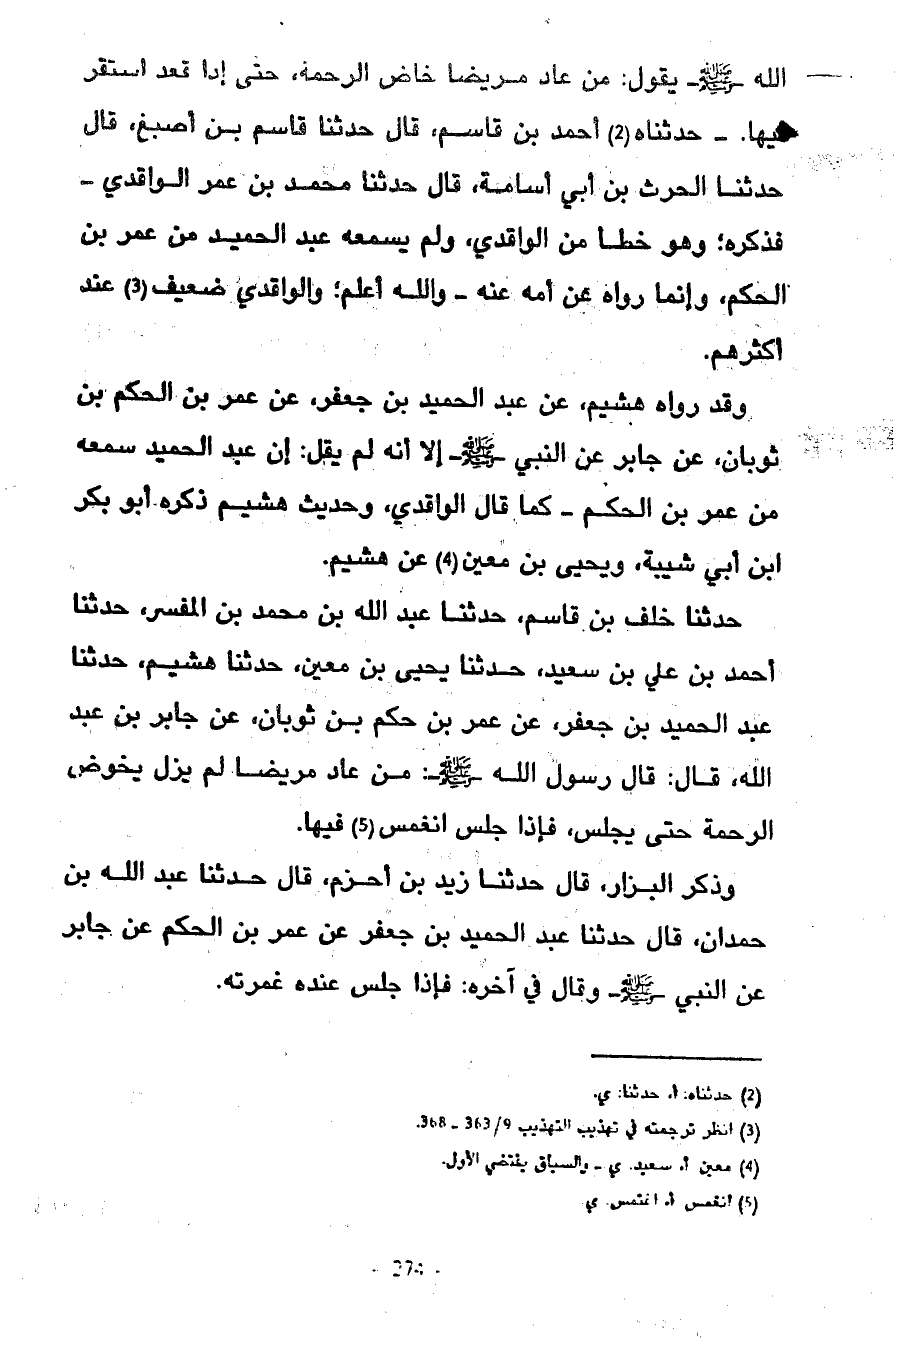 الله ـﷺـ يقول: من عاد مريضا خاض الرحمة، حتى إذا قعد استقر
فيها. ـ حدثناه (2) أحمد بن قاسم، قال حدثنا قاسم بن أصبغ، قال
حدثنا الحرث بن أبي أسامة، قال حدثنا محمد بن عمر الواقدي ـ
فذكره؛ وهو خطأ من الواقدي، ولم يسمعه عبد الحميد من عمر بن
الحكم، وإنما رواه عن أمه عنه ـ والله أعلم؛ والواقدي ضعيف (3) عند
أكثرهم.
وقد رواه هشيم، عن عبد الحميد بن جعفر، عن عمر بن الحكم بن
ثوبان، عن جابر عن النبي ـﷺـ إلا أنه لم يقل: إن عبد الحميد سمعه
من عمر بن الحكم ـ كما قال الواقدي، وحديث هشيم ذكره أبو بكر
ابن أبي شيبة، ويحيى بن معين (4) عن هشيم.
حدثنا خلف بن قاسم، حدثنا عبد الله بن محمد بن المفسر، حدثنا
أحمد بن علي بن سعيد، حدثنا يحيى بن معين، حدثنا هشيم، حدثنا
عبد الحميد بن جعفر، عن عمر بن حكم بن ثوبان، عن جابر بن عبد
الله، قال: قال رسول الله ـﷺـ: من عاد مريضا لم يزل يخوض
الرحمة حتى يجلس، فإذا جلس انغمس (5) فيها.
وذكر البزار، قال حدثنا زيد بن أحزم، قال حدثنا عبد الله بن
حمدان، قال حدثنا عبد الحميد بن جعفر عن عمر بن الحكم عن جابر
عن النبي ـﷺـ وقال في آخره: فإذا جلس عنده غمرته.
(2) حدثناه: أ، حدثنا: ي.
(3) انظر ترجمته في تهذيب التهذيب 9/363 ـ 368.
(4) معين أ، سعيد. ي ـ والسياق يقتضي الأول.
(5) انغمس أ، اغتمس. ي
- 274 -